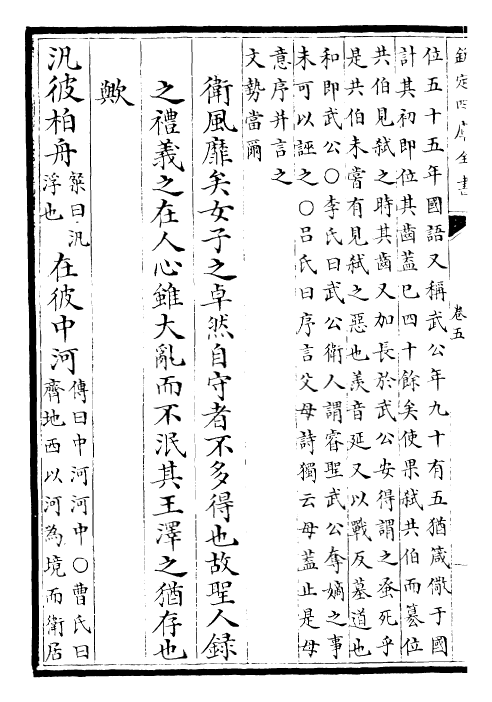 欽定四庫全書
卷五
位五十五年國語又稱武公年九十有五猶箴儆于國
計其初即位其齒蓋已四十餘矣使果弑共伯而簒位
共伯見弑之時其齒又加長於武公安得謂之蚤死乎
是共伯未嘗有見弑之惡也羨音延又以戰反墓道也
和即武公○李氏曰武公衛人謂睿聖武公奪嫡之事
未可以誣之○呂氏曰序言父母詩獨云母蓋止是母
意序并言之
文勢當爾
衛風靡矣女子之卓然自守者不多得也故聖人録
之禮義之在人心雖大亂而不泯其王澤之猶存也
歟
汎彼柏舟
箋曰汎
浮也
在彼中河
傳曰中河河中○曹氏曰
齊地西以河為境而衛居